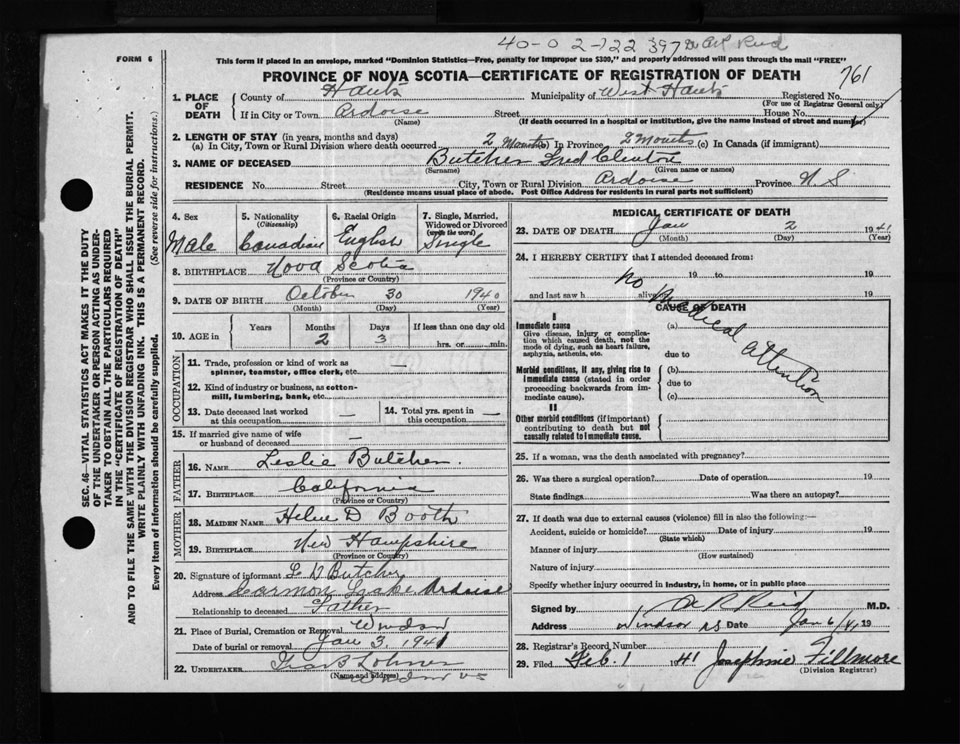 40-0 2-122 397 Dr A R Reid
FORM 6
This form if placed in an envelope, marked "Dominion Statistics—Free, penalty for improper use $300," and properly addressed will pass through the mail "FREE"
PROVINCE OF NOVA SCOTIA—CERTIFICATE OF REGISTRATION OF DEATH
761
1. PLACE OF DEATH { County of Hants Municipality of West Hants Registered No.
(For use of Registrar General only)
If in City or Town Ardoise Street House No.
(Name) (If death occurred in a hospital or institution, give the name instead of street and number)
2. LENGTH OF STAY (in years, months and days)
(a) In City, Town or Rural Division where death occurred 2 Months (b) In Province 2 Months (c) In Canada (if immigrant)
3. NAME OF DECEASED Butcher Fred Clinton
(Surname) (Given name or names)
RESIDENCE No. Street City, Town or Rural Division Ardoise Province N.S
(Residence means usual place of abode. Post Office Address for residents in rural parts not sufficient)
4. Sex Male
5. Nationality (Citizenship) Canadian
6. Racial Origin English
7. Single, Married, Widowed or Divorced (write the word) Single
8. BIRTHPLACE Nova Scotia
(Province or Country)
9. DATE OF BIRTH October 30 1940
(Month) (Day) (Year)
10. AGE in Years Months 2 Days 3 If less than one day old hrs. or min.
OCCUPATION
11. Trade, profession or kind of work as spinner, teamster, office clerk, etc. —
12. Kind of industry or business, as cotton-mill, lumbering, bank, etc. —
13. Date deceased last worked at this occupation —
14. Total yrs. spent in this occupation —
15. If married give name of wife or husband of deceased —
FATHER
16. NAME Leslie Butcher.
17. BIRTHPLACE California
(Province or Country)
MOTHER
18. MAIDEN NAME Helen D Booth
19. BIRTHPLACE New Hampshire
(Province or Country)
20. Signature of informant L D Butcher
Address Lake Ardoise
Relationship to deceased Father
21. Place of Burial, Cremation or Removal Windsor
Date of burial or removal Jan 3, 1941
22. UNDERTAKER
(Name and address) Windsor NS
MEDICAL CERTIFICATE OF DEATH
23. DATE OF DEATH Jan 2 1941
(Month) (Day) (Year)
24. I HEREBY CERTIFY that I attended deceased from:
19 to 19
and last saw h alive 19
No Medical Attention
CAUSE OF DEATH
I
Immediate cause (a)
Give disease, injury or complication which caused death, not the mode of dying, such as heart failure, asphyxia, asthenia, etc.
due to
Morbid conditions, if any, giving rise to immediate cause (stated in order proceeding backwards from immediate cause). (b)
due to
(c)
II
Other morbid conditions (if important) contributing to death but not causally related to immediate cause.
25. If a woman, was the death associated with pregnancy?
26. Was there a surgical operation? Date of operation 19
State findings Was there an autopsy?
27. If death was due to external causes (violence) fill in also the following:—
Accident, suicide or homicide? Date of injury 19
(State which)
Manner of injury
(How sustained)
Nature of injury
Specify whether injury occurred in industry, in home, or in public place
Signed by A R Reid M.D.
Address Windsor NS Date Jan 6/41 19
28. Registrar's Record Number
29. Filed Feb. 1 1941 Josephine Fillmore
(Division Registrar)
SEC. 46—VITAL STATISTICS ACT MAKES IT THE DUTY
OF THE UNDERTAKER OR PERSON ACTING AS UNDER-
TAKER TO OBTAIN ALL THE PARTICULARS REQUIRED
IN THE "CERTIFICATE OF REGISTRATION OF DEATH"
AND TO FILE THE SAME WITH THE DIVISION REGISTRAR WHO SHALL ISSUE THE BURIAL PERMIT.
WRITE PLAINLY WITH UNFADING INK. THIS IS A PERMANENT RECORD.
Every item of information should be carefully supplied. (See reverse side for instructions.)